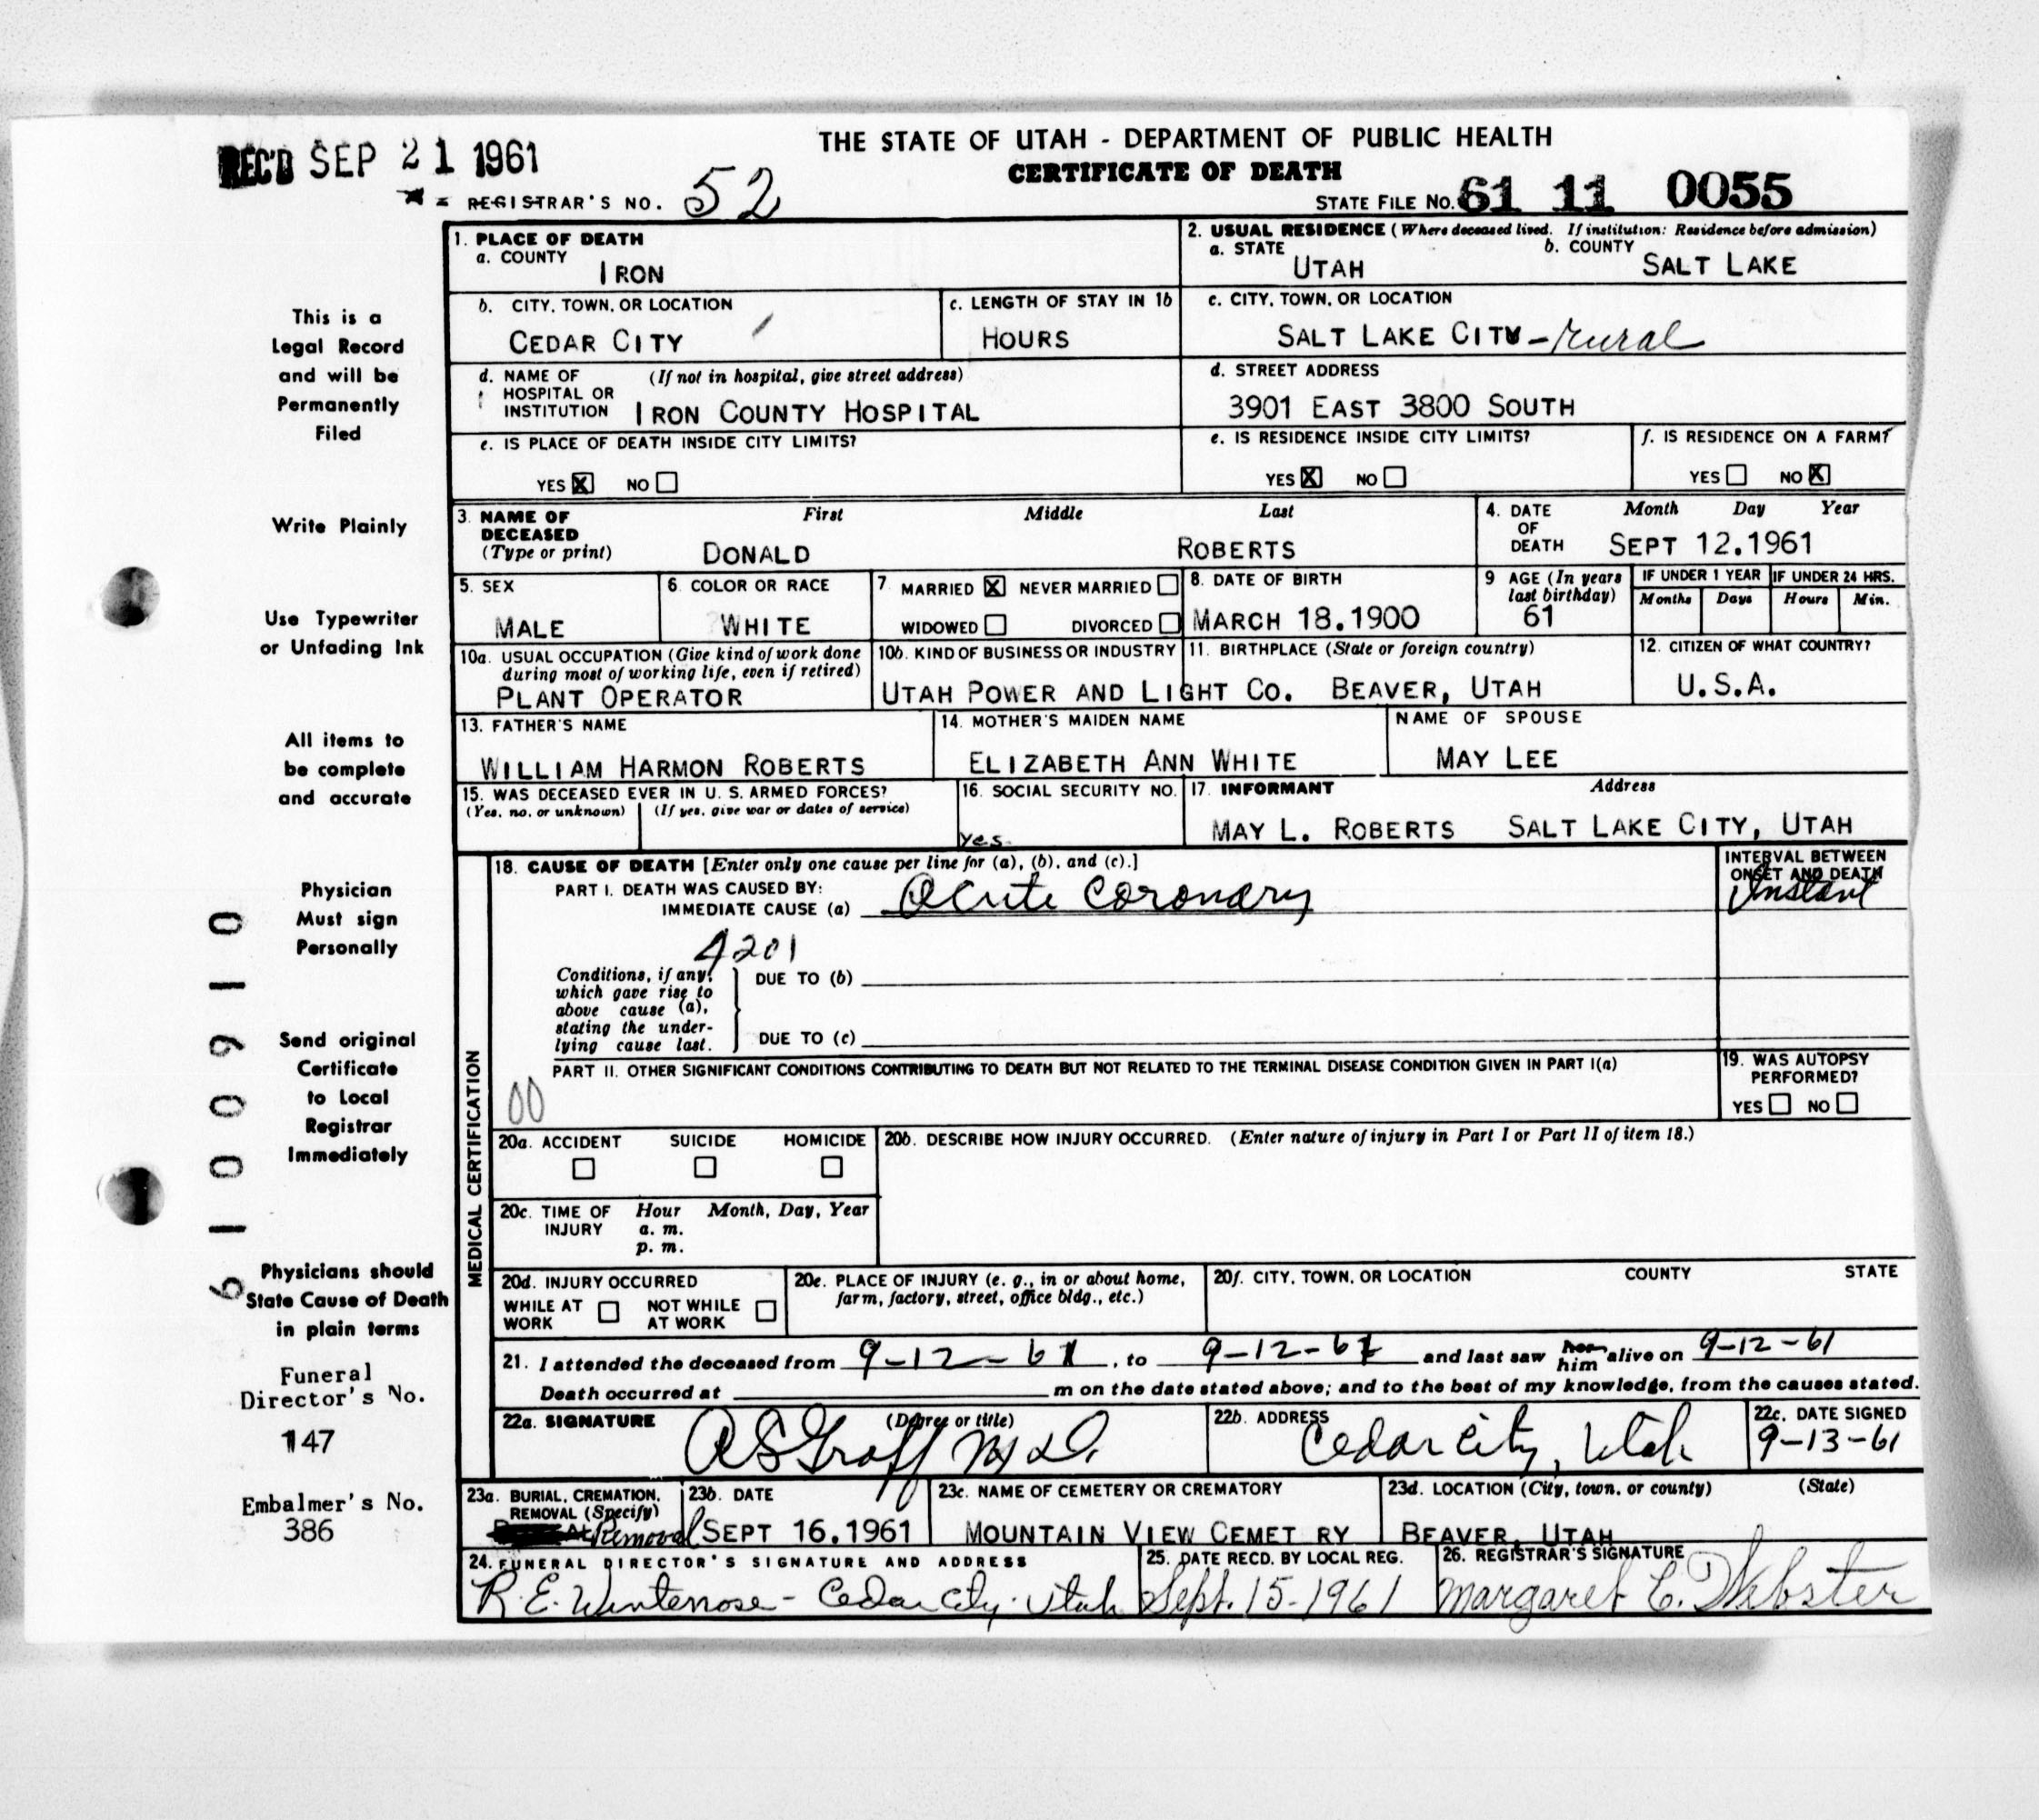 REC'D SEP 21 1961
THE STATE OF UTAH - DEPARTMENT OF PUBLIC HEALTH
CERTIFICATE OF DEATH
REGISTRAR'S NO. 52
STATE FILE NO. 61 11 0055
This is a
Legal Record
and will be
Permanently
Filed
Write Plainly
Use Typewriter
or Unfading Ink
All items to
be complete
and accurate
Physician
Must sign
Personally
Send original
Certificate
to Local
Registrar
Immediately
Physicians should
State Cause of Death
in plain terms
Funeral
Director's No.
147
Embalmer's No.
386
6100910
1. PLACE OF DEATH
a. COUNTY
IRON
2. USUAL RESIDENCE (Where deceased lived. If institution: Residence before admission)
a. STATE
UTAH
b. COUNTY
SALT LAKE
b. CITY, TOWN, OR LOCATION
CEDAR CITY
c. LENGTH OF STAY IN 1b
HOURS
c. CITY, TOWN, OR LOCATION
SALT LAKE CITY - rural
d. NAME OF (If not in hospital, give street address)
HOSPITAL OR
INSTITUTION IRON COUNTY HOSPITAL
d. STREET ADDRESS
3901 EAST 3800 SOUTH
e. IS PLACE OF DEATH INSIDE CITY LIMITS?
YES X NO
e. IS RESIDENCE INSIDE CITY LIMITS?
YES X NO
f. IS RESIDENCE ON A FARM?
YES NO X
3. NAME OF First Middle Last
DECEASED
(Type or print) DONALD ROBERTS
4. DATE Month Day Year
OF
DEATH SEPT 12.1961
5. SEX
MALE
6. COLOR OR RACE
WHITE
7 MARRIED X NEVER MARRIED
WIDOWED DIVORCED
8. DATE OF BIRTH
MARCH 18.1900
9 AGE (In years
last birthday)
61
IF UNDER 1 YEAR IF UNDER 24 HRS.
Months Days Hours Min.
10a. USUAL OCCUPATION (Give kind of work done
during most of working life, even if retired)
PLANT OPERATOR
10b. KIND OF BUSINESS OR INDUSTRY
UTAH POWER AND LIGHT CO.
11. BIRTHPLACE (State or foreign country)
BEAVER, UTAH
12. CITIZEN OF WHAT COUNTRY?
U.S.A.
13. FATHER'S NAME
WILLIAM HARMON ROBERTS
14. MOTHER'S MAIDEN NAME
ELIZABETH ANN WHITE
NAME OF SPOUSE
MAY LEE
15. WAS DECEASED EVER IN U. S. ARMED FORCES?
(Yes, no, or unknown) (If yes, give war or dates of service)
16. SOCIAL SECURITY NO.
yes
17. INFORMANT Address
MAY L. ROBERTS SALT LAKE CITY, UTAH
MEDICAL CERTIFICATION
18. CAUSE OF DEATH [Enter only one cause per line for (a), (b), and (c).]
PART I. DEATH WAS CAUSED BY:
IMMEDIATE CAUSE (a) Acute Coronary
INTERVAL BETWEEN
ONSET AND DEATH
Instant
4201
Conditions, if any,
which gave rise to
above cause (a),
stating the under-
lying cause last.
DUE TO (b)
DUE TO (c)
PART II. OTHER SIGNIFICANT CONDITIONS CONTRIBUTING TO DEATH BUT NOT RELATED TO THE TERMINAL DISEASE CONDITION GIVEN IN PART I(a)
00
19. WAS AUTOPSY
PERFORMED?
YES NO
20a. ACCIDENT SUICIDE HOMICIDE
20b. DESCRIBE HOW INJURY OCCURRED. (Enter nature of injury in Part I or Part II of item 18.)
20c. TIME OF Hour Month, Day, Year
INJURY a. m.
p. m.
20d. INJURY OCCURRED
WHILE AT NOT WHILE
WORK AT WORK
20e. PLACE OF INJURY (e. g., in or about home,
farm, factory, street, office bldg., etc.)
20f. CITY, TOWN, OR LOCATION COUNTY STATE
21. I attended the deceased from 9-12-61, to 9-12-61 and last saw her him alive on 9-12-61
Death occurred at m on the date stated above; and to the best of my knowledge, from the causes stated.
22a. SIGNATURE (Degree or title)
A S Graff M D.
22b. ADDRESS
Cedar City, Utah
22c. DATE SIGNED
9-13-61
23a. BURIAL, CREMATION,
REMOVAL (Specify)
Removal
23b. DATE
SEPT 16.1961
23c. NAME OF CEMETERY OR CREMATORY
MOUNTAIN VIEW CEMET RY
23d. LOCATION (City, town, or county) (State)
BEAVER, UTAH
24. FUNERAL DIRECTOR'S SIGNATURE AND ADDRESS
R. E. Winterrose - Cedar City. Utah
25. DATE RECD. BY LOCAL REG.
Sept. 15-1961
26. REGISTRAR'S SIGNATURE
Margaret E. Webster